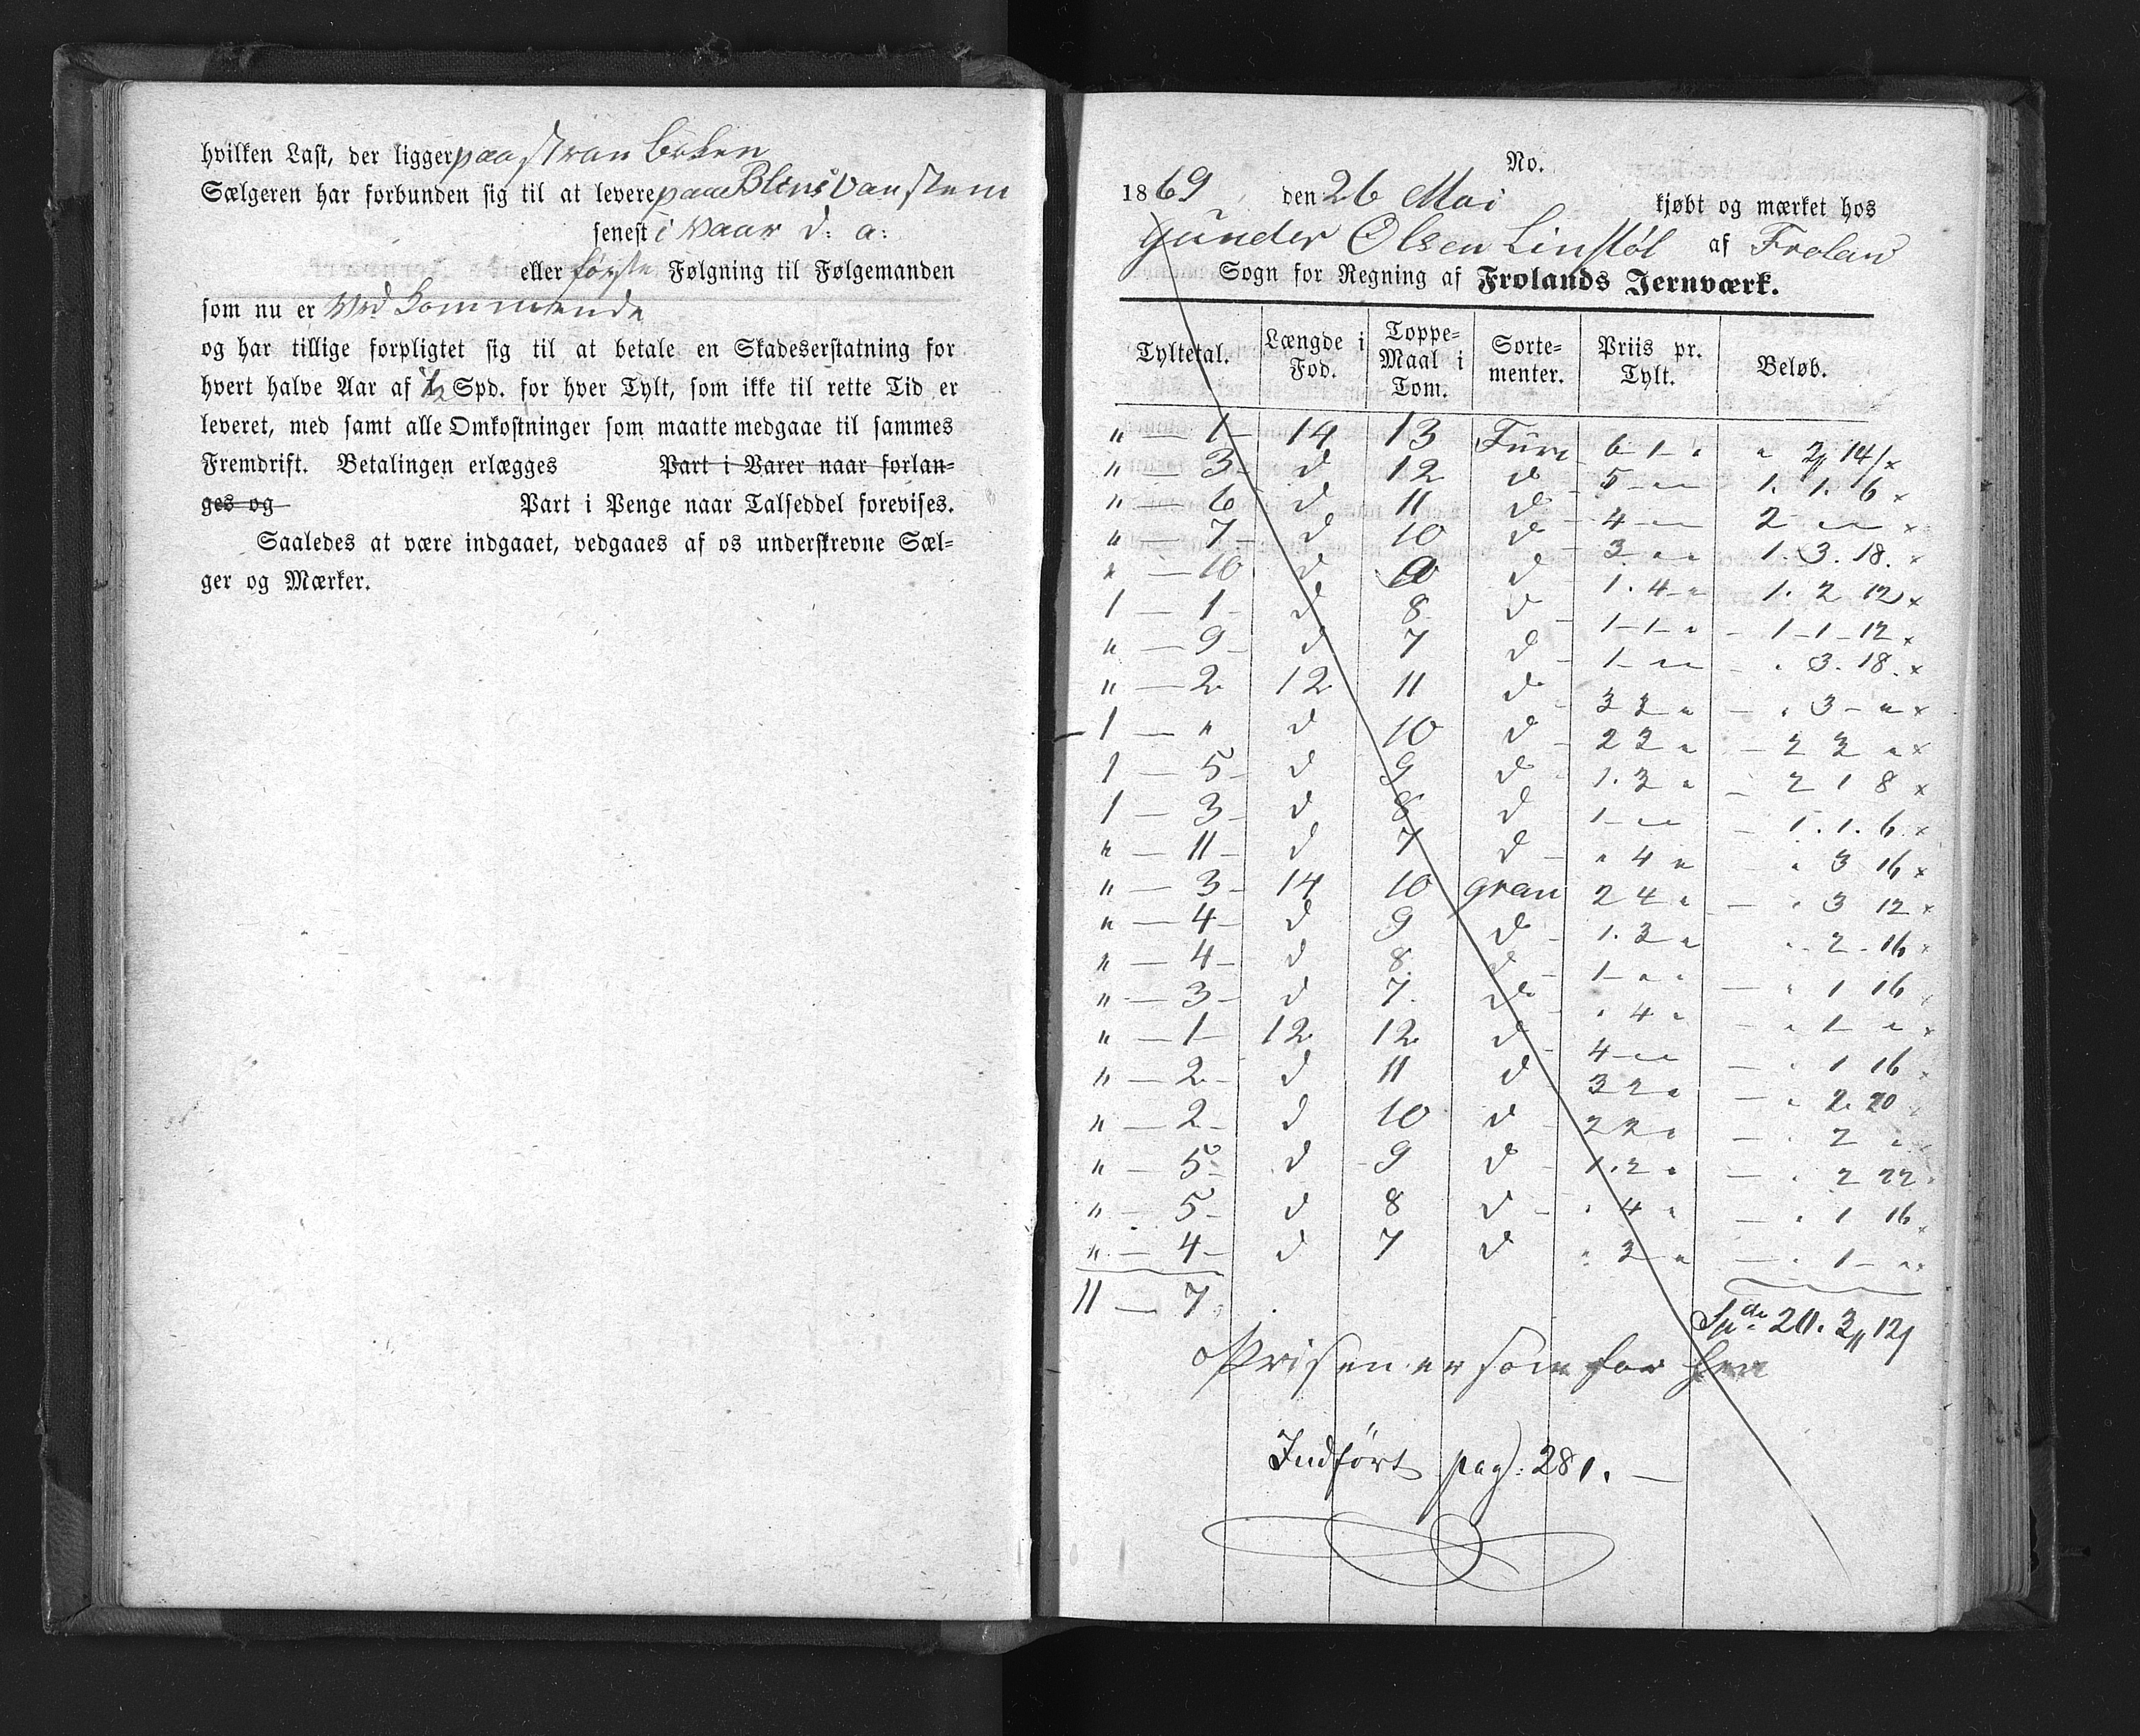 hvilken Last, der ligger paa stran breken
Sælgeren har forbunden sig til at levere paa Blens vanstem
senest i vaar d: a:
eller første Følgning til Følgemanden
som nu er ved kommende
og har tillige forpligtet sig til at betale en Skadeserstatning for
hvert halve Aar af 1/2 Spd. for hver Tylt, som ikke til rette Tid er
leveret, med samt alle Omkostninger som maatte medgaae til sammes
Fremdrift. Betalingen erlægges Part i Varer naar forlan=
ges og Part i Penge naar Talseddel forevises.
Saaledes at være indgaaet, vedgaaes af os underskrevne Sæl=
ger og Mærker.
No.
1869, den 26 Mai kjøbt og mærket hos
Gunder Olsen Linstøl af Froland
Sogn for Regning af Frolands Jernværk.
Tyltetal. Længde i Fod. Toppe=Maal i Tom. Sorte=menter. Priis pr. Tylt. Beløb.
" — 1 — 14 13 Furu 6 - 1 - " " 2 14 x
" — 3 — d 12 d 5 - " " 1. 1. 6 x
" — 6 d 11 d 4 - " " 2 " " x
" — 7 — d 10 d 3 - " " 1. 3. 18. x
" — 10 d 9 d 1. 4 - " 1. 2 12 x
1 — 1 — d 8 d 1 - 1 - " 1 - 1 - 12 x
" — 9 — d 7 d 1 - " " " 3. 18. x
" — 2 12 11 d 3 3 " " 3 - " x
1 — " d 10 d 2 2 " 2 2 " x
1 — 5 — d 9 d 1. 3 " 2 1 8 x
1 — 3 — d 8 d 1 - " " 1. 1. 6 x
" — 11 — d 7 d " 4 " " 3 16 x
" — 3 — 14 10 gran 2 4 " " 3 12 x
" — 4 — d 9 d 1. 3 " " 2 - 16 x
" — 4 — d 8 d 1 - " " " 1 16 x
" — 3 — d 7 d " 4 " " 1 - " x
" — 1 — 12 12 d 4 - " " " 1 16 x
" — 2 — d 11 d 3 2 " " 2. 20 x
" — 2 — d 10 d 2 2 " " 2 " x
" — 5 — d 9 d 1. 2 " " 2 22 x
" — 5 — d 8 d " 4 " " 1 16 x
" — 4 — d 7 d " 3 " " 1 - " x
11 — 7 Spdr 20. 3 12
Prisen er som for hen
Indført pag: 281. —